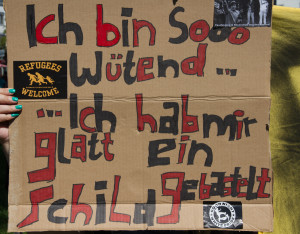 Ich bin Sooo
Wütend...
REFUGEES
WELCOME
...Ich hab mir
glatt ein
Schild gebastelt